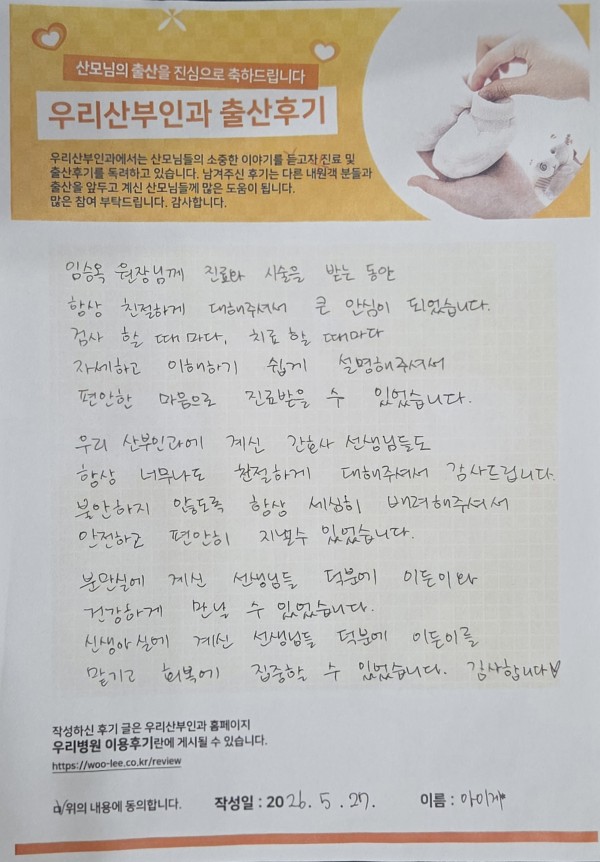 산모님의 출산을 진심으로 축하드립니다
우리산부인과 출산후기
우리산부인과에서는 산모님들의 소중한 이야기를 듣고자 진료 및
출산후기를 독려하고 있습니다. 남겨주신 후기는 다른 내원객 분들과
출산을 앞두고 계신 산모님들께 많은 도움이 됩니다.
많은 참여 부탁드립니다. 감사합니다.
임승옥 원장님께 진료와 시술을 받는 동안
항상 친절하게 대해주셔서 큰 안심이 되었습니다.
검사 할 때 마다, 치료 할 때마다
자세하고 이해하기 쉽게 설명해주셔서
편안한 마음으로 진료받을 수 있었습니다.
우리 산부인과에 계신 간호사 선생님들도
항상 너무나도 친절하게 대해주셔서 감사드립니다.
불안하지 않도록 항상 세심히 배려해주셔서
안전하고 편안히 지낼수 있었습니다.
분만실에 계신 선생님들 덕분에 이든이와
건강하게 만날 수 있었습니다.
신생아 실에 계신 선생님들 덕분에 이든이를
맡기고 회복에 집중할 수 있었습니다. 감사합니다♡
작성하신 후기 글은 우리산부인과 홈페이지
우리병원 이용후기란에 게시될 수 있습니다.
https://woo-lee.co.kr/review
위의 내용에 동의합니다. 작성일 : 2026. 5. 27. 이름 :